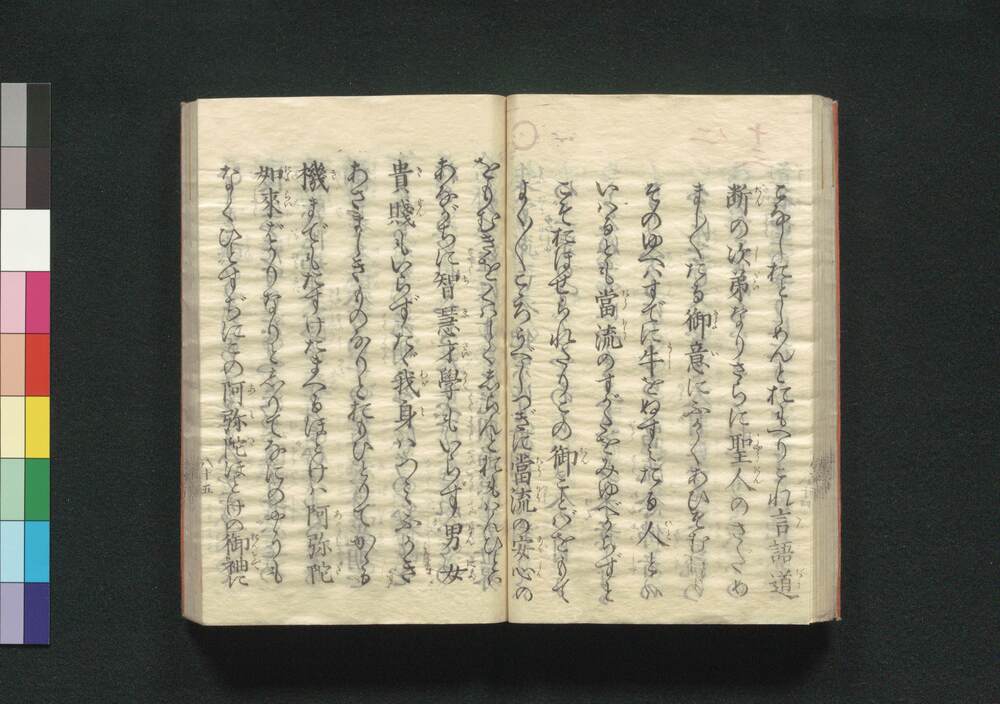 こなしおとしめんとおもへりこれ言語道
断の次第なりさらに聖人のさだめ
ましましたる御意にふかくあひそむけり
そのゆへはすでに牛をぬすみたる人とは
いはるとも當流のすがたをみゆべからずと
こそおほせられたりこの御ことばをもて
よくよくこころうべしつぎに當流の安心の
をもむきをくはしくしらんとおもはんひとは
あながちに智慧才學もいらず男女
貴賤もいらずただ我身はつみふかき
あさましきものなりとおもひとりてかかる
機までもたすけたまへるほとけは阿弥陀
如來ばかりなりとしりてなにのやうも
なくひとすぢにこの阿弥陀ほとけの御袖に
八十五